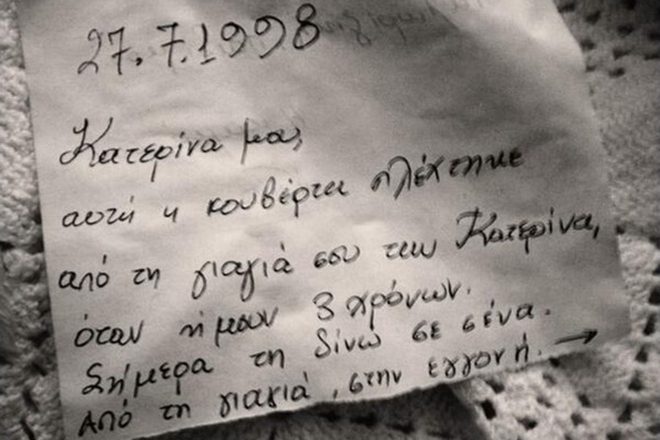 27.7.1998
Κατερίνα μας
αυτή η κουβέρτα πλέχτηκε
από τη γιαγιά σου την Κατερίνα,
όταν ήμουν 3 χρόνων.
Σήμερα τη δίνω σε σένα.
Από τη γιαγιά, στην εγγονή. →